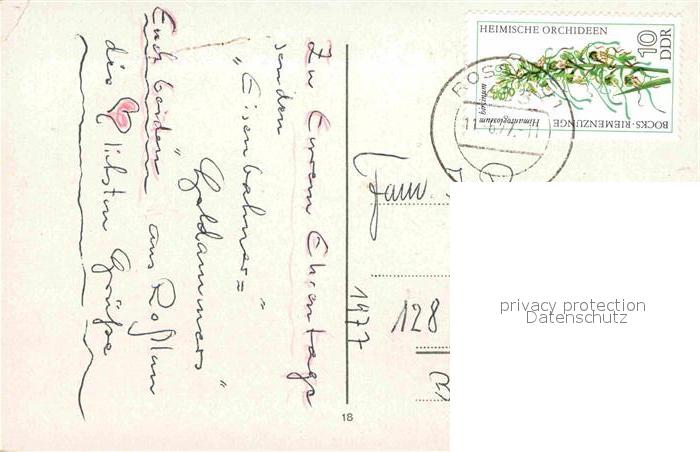 Zu Eurem Ehrentage
senden
"Eisenbahner=
Goldammers"
Euch beiden aus Roßlau
die lichsten Grüße
1977
HEIMISCHE ORCHIDEEN
10
DDR
BOCKS-RIEMENZUNGE
Himantoglossum
hircinum
ROSSLAU
11.6.77-11
Fam.
128
18
privacy protection
Datenschutz